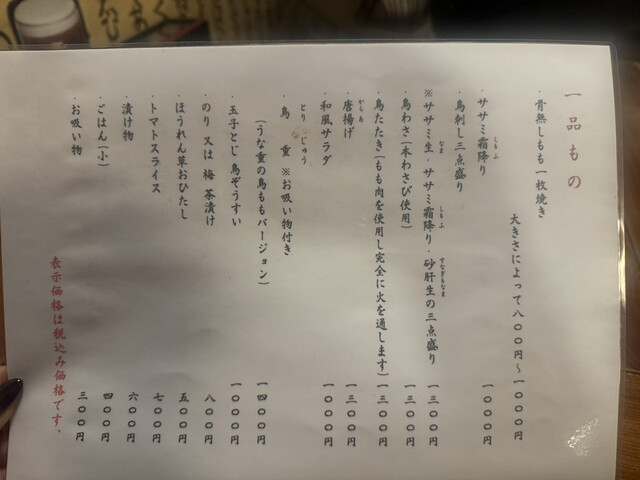 一品もの
・骨無しもも一枚焼き
大きさによって八〇〇円～一〇〇〇円
・ササミ霜降り 一〇〇〇円
しもふ
・鳥刺し三点盛り
※ササミ生・ササミ霜降り・砂肝生の三点盛り 一三〇〇円
なま しもふ すなぎもなま
・鳥わさ(本わさび使用) 一三〇〇円
・鳥たたき(もも肉を使用し完全に火を通します) 一三〇〇円
・唐揚げ 一三〇〇円
からあ
・和風サラダ 一〇〇〇円
・鳥重 ※お吸い物付き
とり じゅう
(うな重の鳥ももバージョン) 一四〇〇円
・玉子とじ 鳥ぞうすい 一〇〇〇円
・のり 又は 梅 茶漬け 八〇〇円
・ほうれん草おひたし 五〇〇円
・トマトスライス 七〇〇円
・漬け物 六〇〇円
・ごはん(小) 四〇〇円
・お吸い物 三〇〇円
表示価格は税込み価格です。